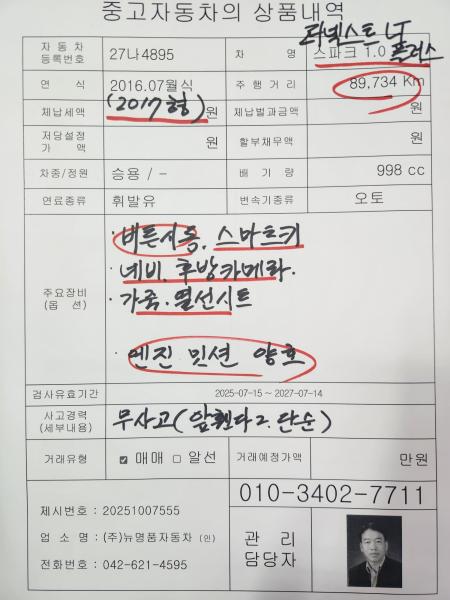 중고자동차의 상품내역
자동차등록번호 27나4895 차 명 스파크 1.0 퍼펙스트 플러스
연 식 2016.07월식 (2017형) 주행거리 89,734 Km
체납세액 원 체납벌과금액 원
저당설정가 액 원 할부채무액 원
차종/정원 승용 / - 배 기 량 998 cc
연료종류 휘발유 변속기종류 오토
주요장비(옵 션)
·버튼시동. 스마트키
·네비. 후방카메라.
·가죽. 열선시트
·엔진 밋션 양호
검사유효기간 2025-07-15 ~ 2027-07-14
사고경력(세부내용) 무사고(앞휀다2. 단순)
거래유형 ☑ 매매 □ 알선 거래예정가액 만원
010-3402-7711
제시번호 : 20251007555
업 소 명 : (주)뉴명품자동차 (인)
전화번호 : 042-621-4595
관 리
담당자